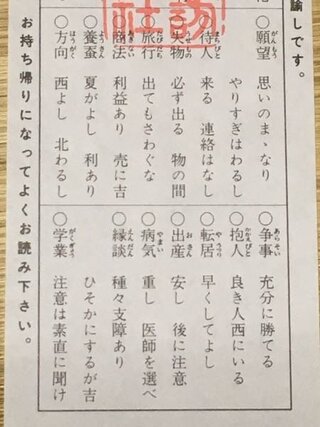 諭しです。
○願望 思いのまゝなり
やりすぎはわるし
○待人 来る 連絡はなし
○失物 必ず出る 物の間
○旅行 出てもさわぐな
○商法 利益あり 売に吉
○養蚕 夏がよし 利あり
○方向 西よし 北わるし
○争事 充分に勝てる
○抱人 良き人西にいる
○転居 早くしてよし
○出産 安し 後に注意
○病気 重し 医師を選べ
○縁談 種々支障あり
ひそかにするが吉
○学業 注意は素直に聞け
お持ち帰りになってよくお読み下さい。